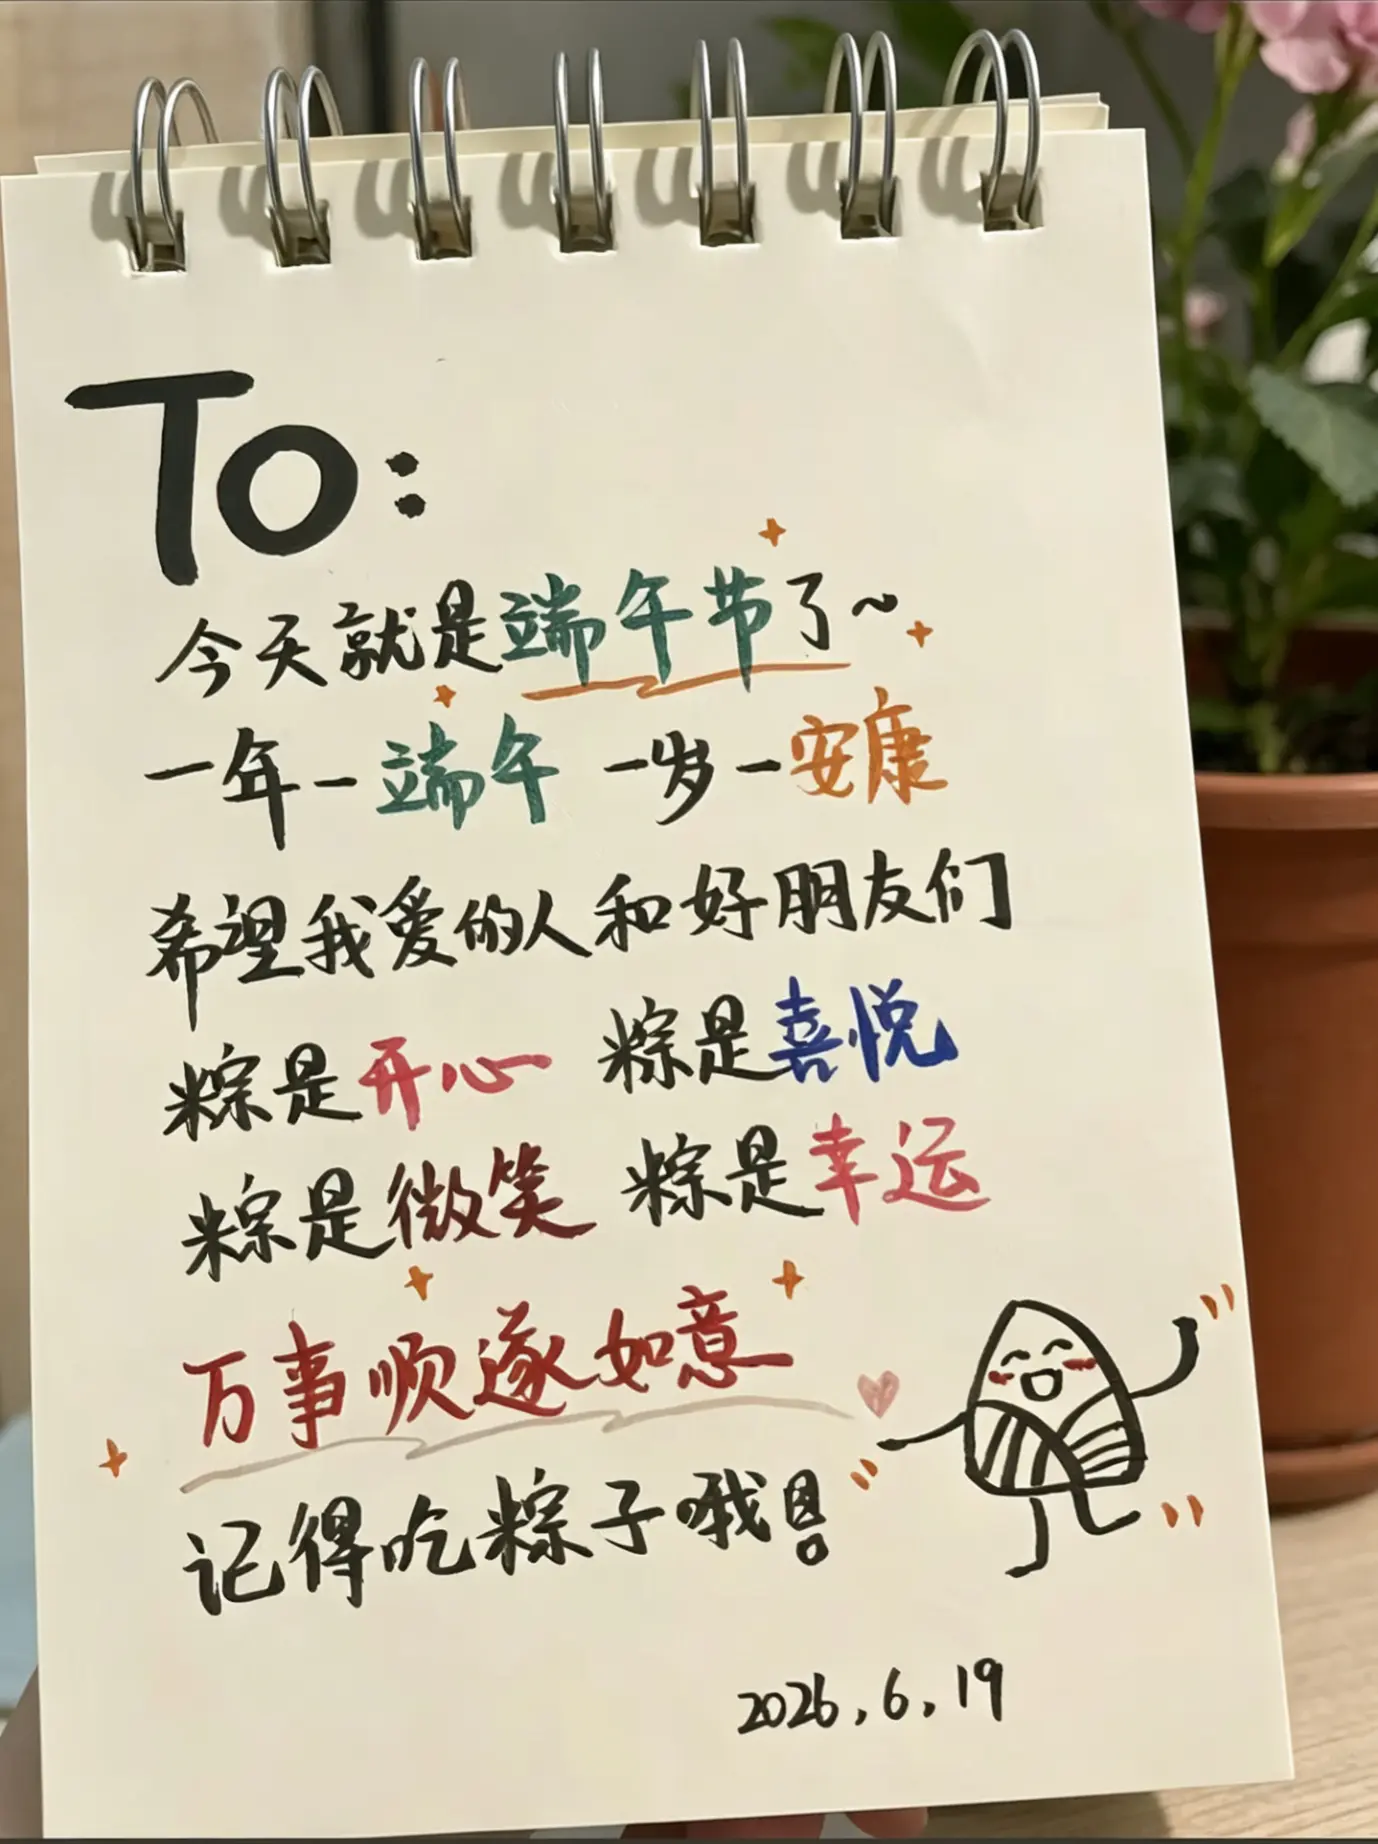 To:
今天就是端午节了~
一年一端午 一岁一安康
希望我爱的人和好朋友们
粽是开心 粽是喜悦
粽是微笑 粽是幸运
万事顺遂如意
记得吃粽子哦!
2026.6.19